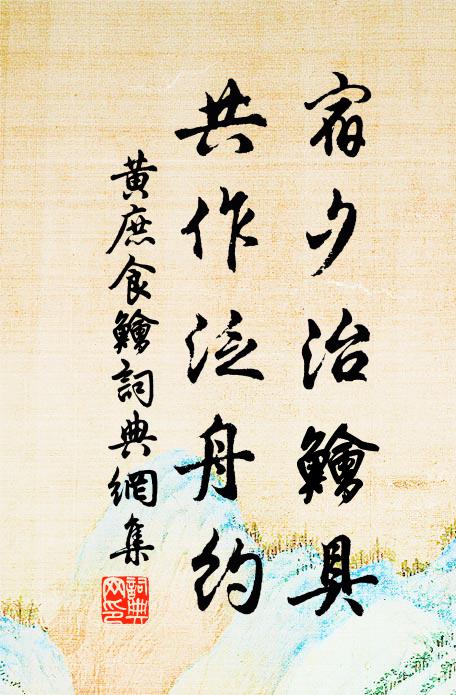 宿夕治鱠具
共作泛舟約
黃庶食鱠詞典網集
詞典
网印